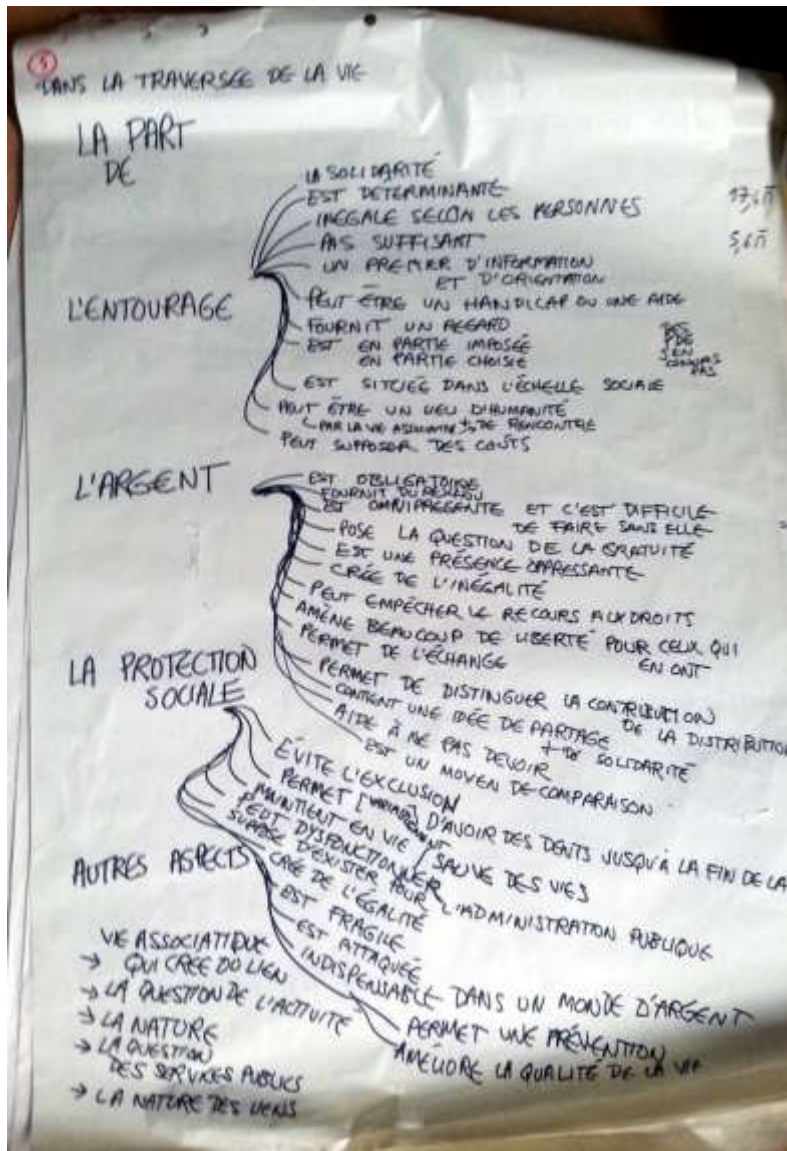 3
DANS LA TRAVERSEE DE LA VIE
LA PART
DE
L'ENTOURAGE
LA SOLIDARITÉ
EST DETERMINANTE
INEGALE SELON LES PERSONNES
PAS SUFFISANT
UN PREMIER D'INFORMATION
ET D'ORIENTATION
PEUT ÊTRE UN HANDICAP OU UNE AIDE
FOURNIT UN REGARD
EST EN PARTIE IMPOSÉE
EN PARTIE CHOISIE
EST SITUÉE DANS L'ÉCHELLE SOCIALE
PEUT ÊTRE UN LIEU D'HUMANITÉ
PAR LA VIE + DE RENCONTRE
PEUT SUPPOSER DES COÛTS
17,6
5,6
PAS
L'ARGENT
EST OBLIGATOIRE
FOURNIT DU RÉSEAU
EST OMNIPRESENTE ET C'EST DIFFICILE
DE FAIRE SANS ELLE
POSE LA QUESTION DE LA GRATUITÉ
EST UNE PRÉSENCE OPPRESSANTE
CRÉE DE L'INÉGALITÉ
PEUT EMPÊCHER LE RECOURS AUX DROITS
AMÈNE BEAUCOUP DE LIBERTÉ POUR CEUX QUI
EN ONT
PERMET DE L'ÉCHANGE
PERMET DE DISTINGUER LA CONTRIBUTION
DE LA DISTRIBUTION
CONTIENT UNE IDÉE DE PARTAGE
+ DE SOLIDARITÉ
AIDE À NE PAS DEVOIR
EST UN MOYEN DE COMPARAISON
LA PROTECTION
SOCIALE
ÉVITE L'EXCLUSION
PERMET D'AVOIR DES DENTS JUSQU'À LA FIN DE LA
MAINTIENT EN VIE / SAUVE DES VIES
PEUT DYSFONCTIONNER
SUPPOSE D'EXISTER POUR L'ADMINISTRATION PUBLIQUE
CRÉE DE L'ÉGALITÉ
EST FRAGILE
EST ATTAQUÉE
INDISPENSABLE DANS UN MONDE D'ARGENT
PERMET UNE PRÉVENTION
AMÉLIORE LA QUALITÉ DE LA VIE
AUTRES ASPECTS
VIE ASSOCIATIVE
→ QUI CREE DU LIEN
→ LA QUESTION DE L'ACTIVITÉ
→ LA NATURE
→ LA QUESTION
DES SERVICES PUBLICS
→ LA NATURE DES LIENS